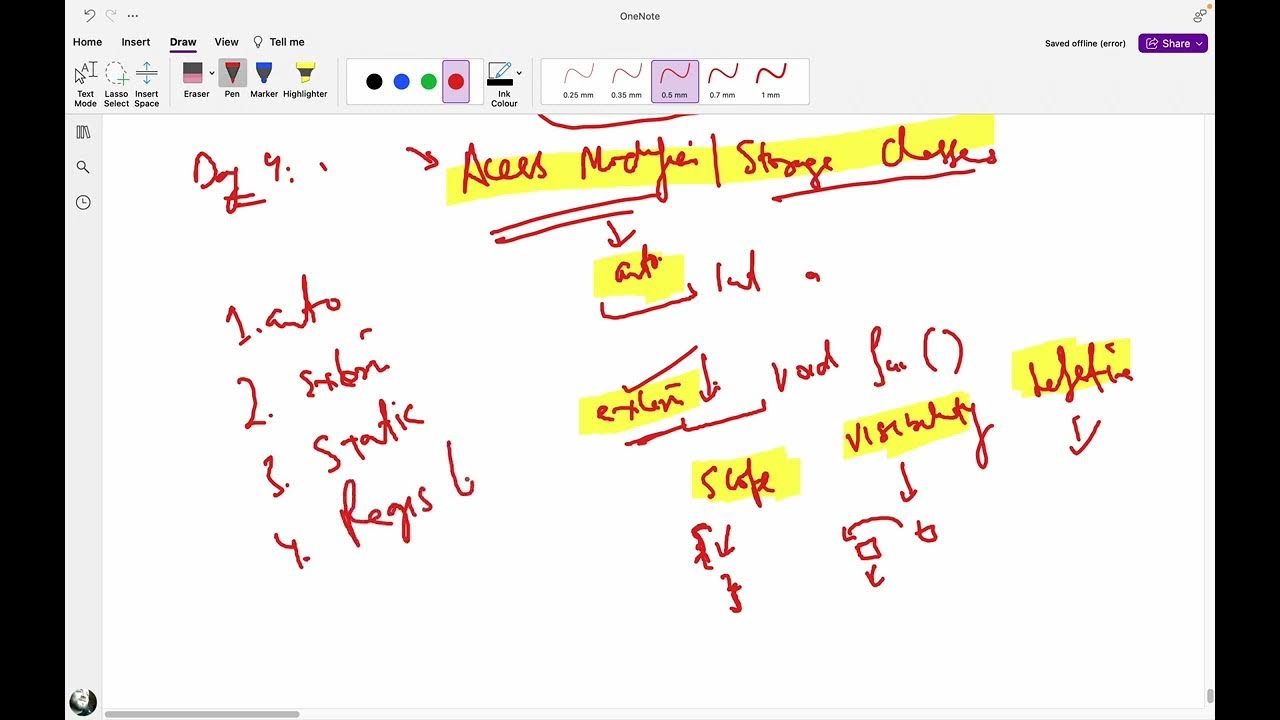 OneNote
Home Insert Draw View Tell me
Saved offline (error)
Share
Text Mode
Lasso Select
Insert Space
Eraser
Pen
Marker
Highlighter
Ink Colour
0.25 mm
0.35 mm
0.5 mm
0.7 mm
1 mm
Day 4:
Acess Modifier | Storage Classes
auto int a
1. auto
2. Extern
3. Static
4. Regis
extern void fun ()
Scope
visibility
lifetime
{
}